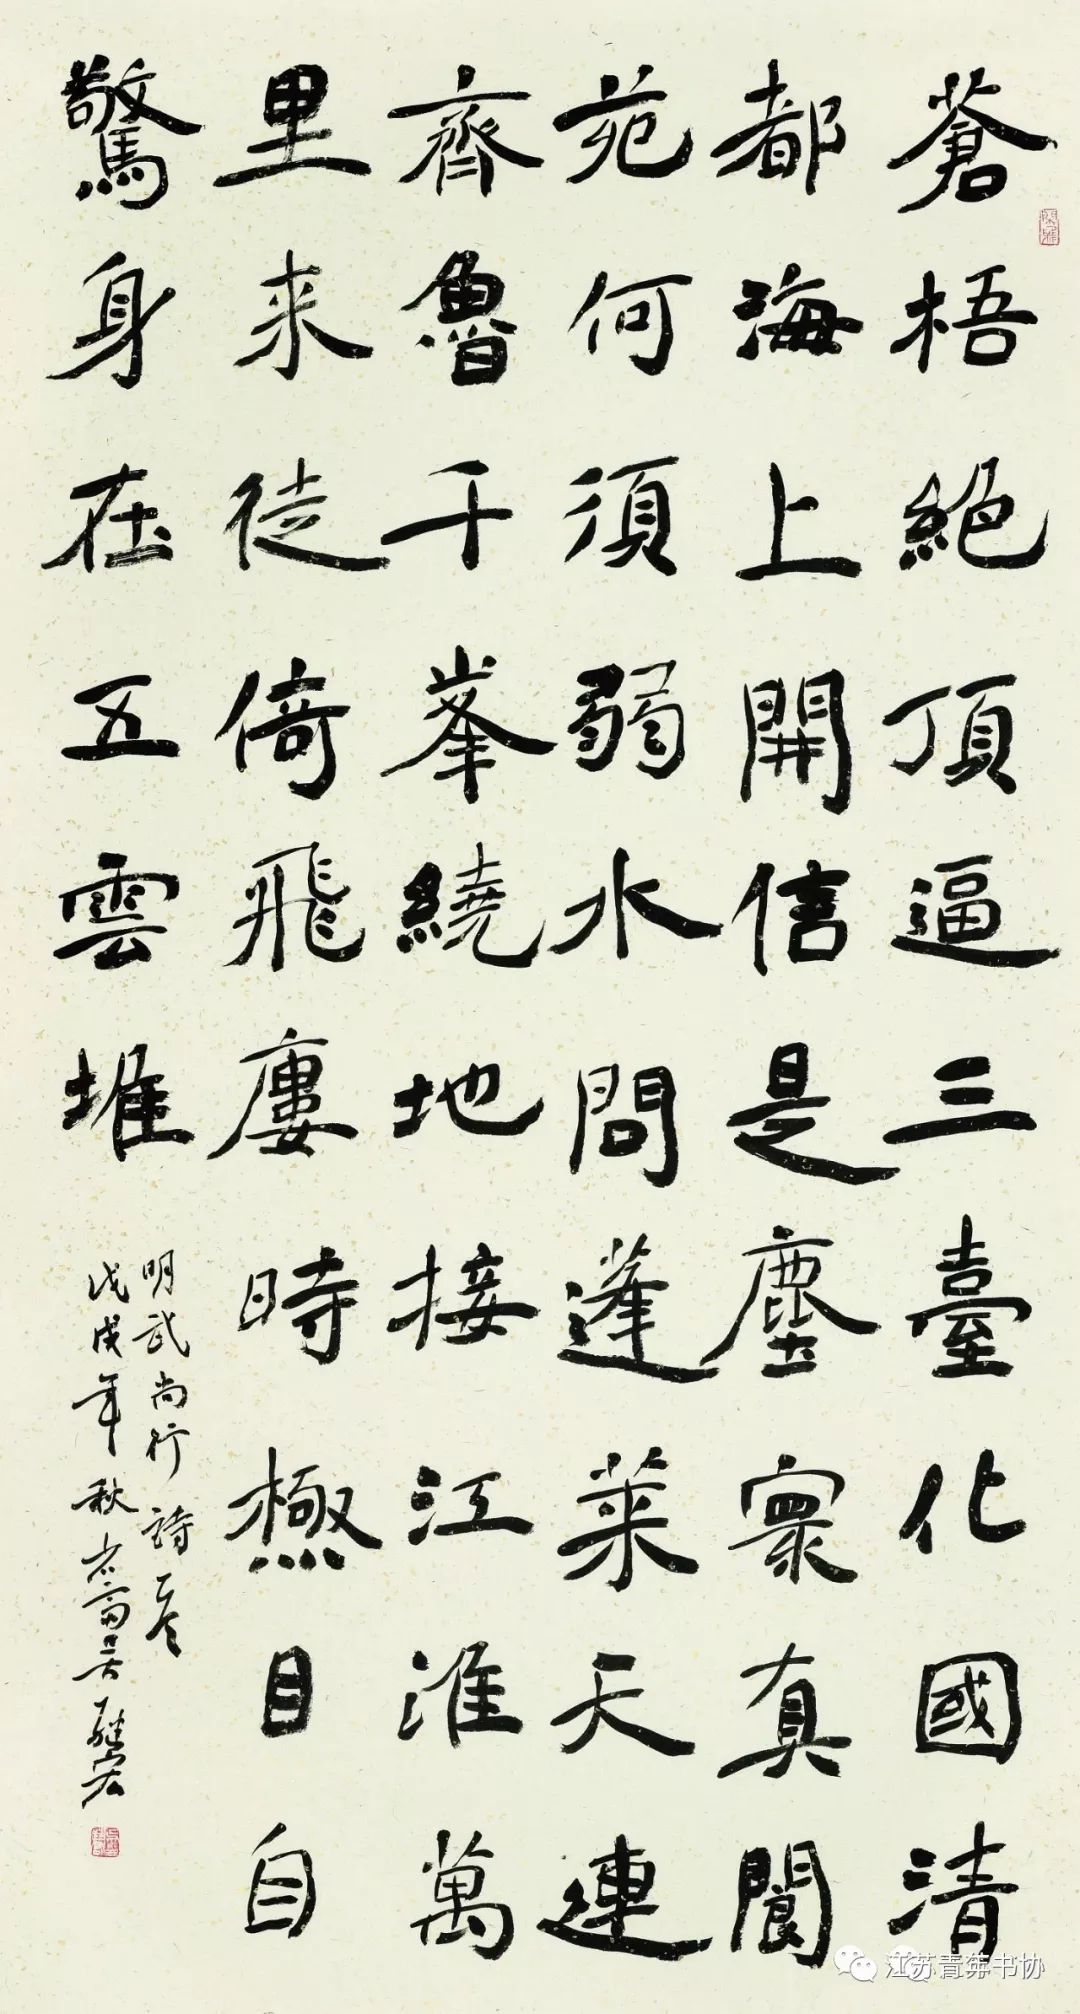 蒼梧絕頂逼三臺化國清
都海上開信是塵寰真閬
苑何須弱水問蓬萊天連
齊魯千峯繞地接江淮萬
里來徒倚飛廔時極目自
驚身在五雲堆
明武尚行詩一首
戊戌年秋
江苏青年书协